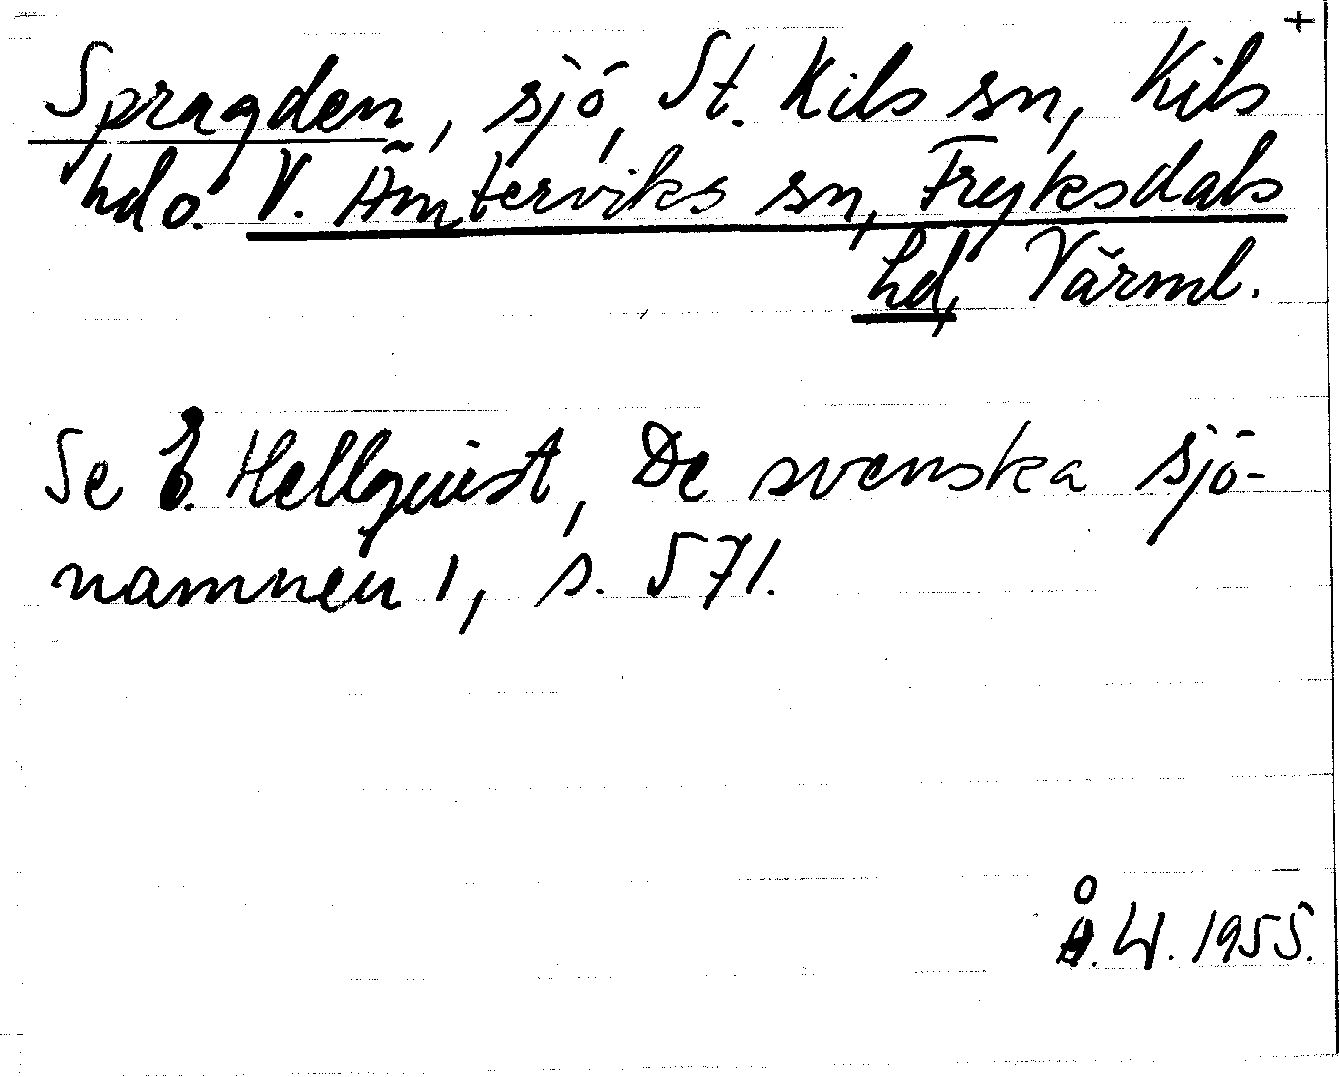 +
Spragden, sjö, St. Kils sn, Kils
hd o. V. Ämterviks sn, Fryksdals
hd, Värml.
Se E. Hellquist, De svenska sjö-
namnen 1, s. 571.
Å. W. 1955.